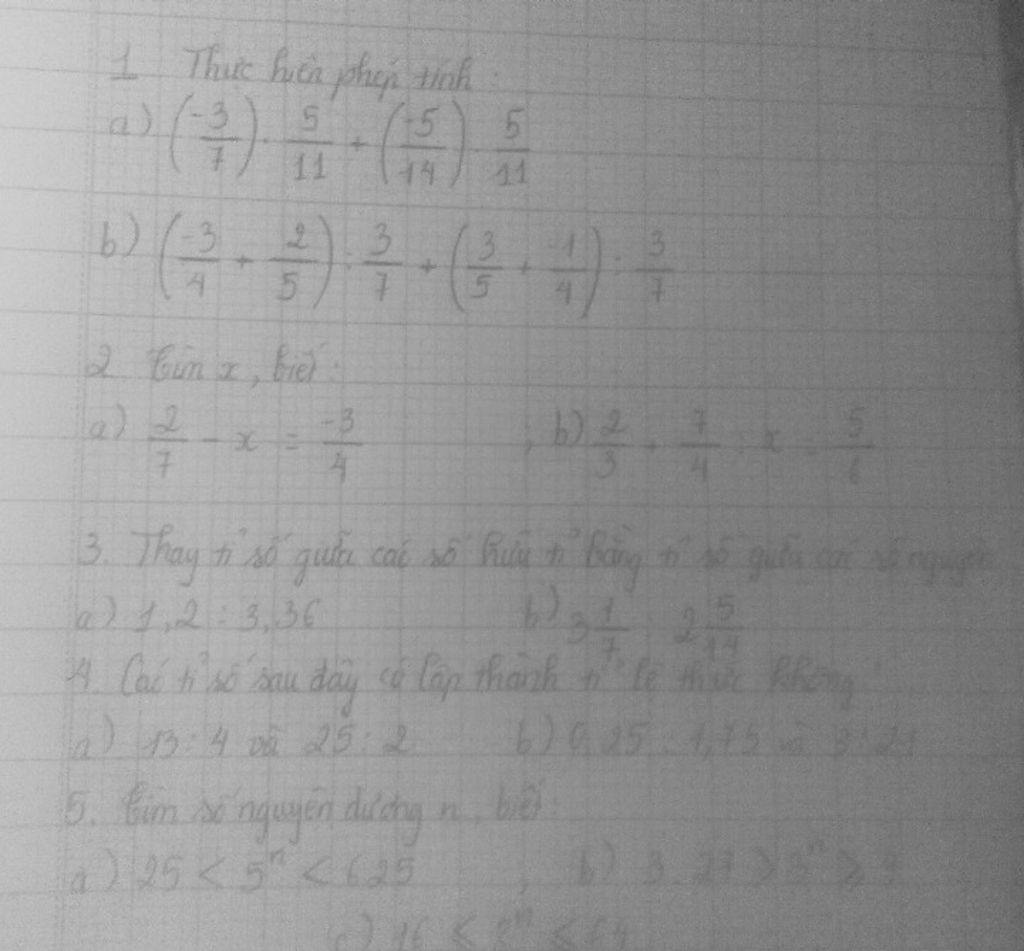 1 Thực hiện phép tính:
a) (-3/7) · 5/11 + (-5/14) · 5/11
b) (-3/4 + 2/5) : 3/7 + (3/5 + -1/4) : 3/7
2 Tìm x, biết:
a) 2/7 - x = -3/4 ; b) 2/3 + 7/4 : x = 5/6
3. Thay tỉ số giữa các số hữu tỉ bằng tỉ số giữa các số nguyên
a) 1,2 : 3,36 b) 3 1/7 : 2 5/14
4. Các tỉ số sau đây có lập thành tỉ lệ thức không
a) 13 : 4 và 25 : 2 b) 0,25 : 1,75 và 3 : 21
5. Tìm số nguyên dương n, biết:
a) 25 < 5ⁿ < 625 ; b) 3 . 27 > 3ⁿ ≥ 9
c) 16 ≤ 2ⁿ ≤ 64